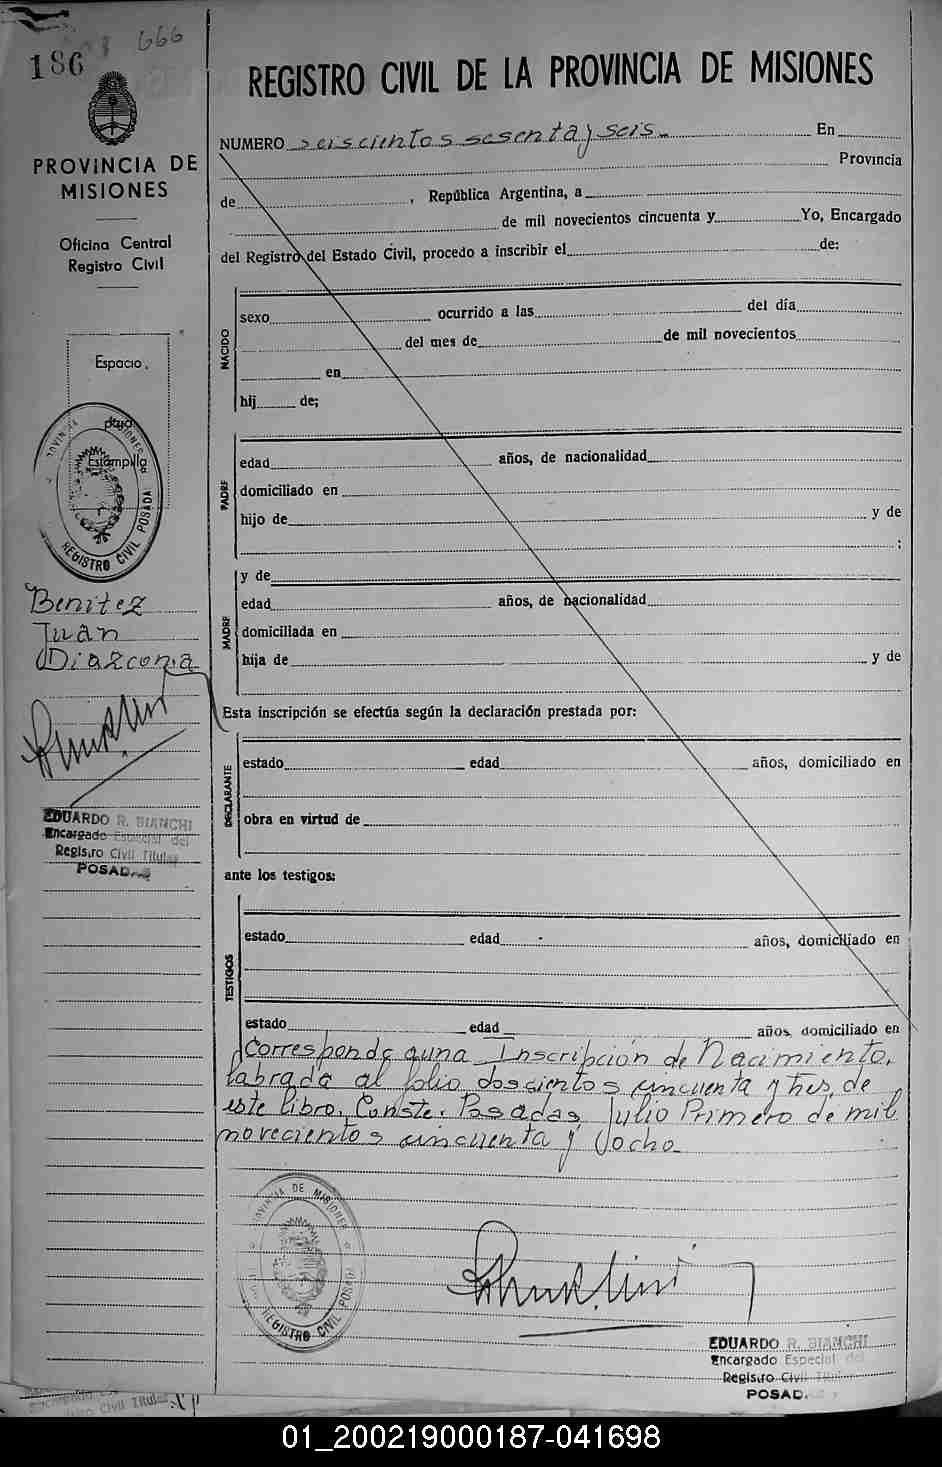 186
666
PROVINCIA DE
MISIONES
Oficina Central
Registro Civil
Espacio
para
Estampilla
PROVINCIA DE MISIONES
REGISTRO CIVIL POSADAS
Benitez
Juan
Diazcona
EDUARDO R. BIANCHI
Encargado Especial del
Registro Civil Titular
POSADAS
REGISTRO CIVIL DE LA PROVINCIA DE MISIONES
NUMERO seiscientos sesenta y seis. En
Provincia
de , República Argentina, a
de mil novecientos cincuenta y Yo, Encargado
del Registro del Estado Civil, procedo a inscribir el de:
NACIDO
sexo ocurrido a las del día
del mes de de mil novecientos
en
hij de;
PADRE
edad años, de nacionalidad
domiciliado en
hijo de y de
;
MADRE
y de
edad años, de nacionalidad
domiciliada en
hija de y de
Esta inscripción se efectúa según la declaración prestada por:
DECLARANTE
estado edad años, domiciliado en
obra en virtud de
ante los testigos:
TESTIGOS
estado edad años, domiciliado en
estado edad años, domiciliado en
Corresponde a una Inscripción de Nacimiento,
labrada al folio doscientos cincuenta y tres, de
este libro. Conste. Posadas, Julio Primero de mil
novecientos cincuenta y ocho.
PROVINCIA DE MISIONES
REGISTRO CIVIL POSADAS
EDUARDO R. BIANCHI
Encargado Especial del
Registro Civil Titular
POSADAS
01_200219000187-041698